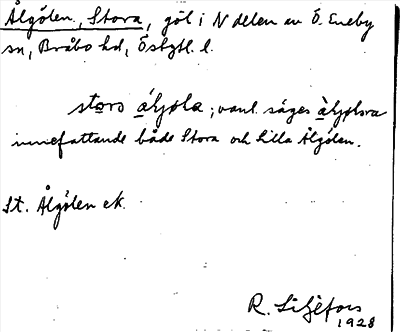 Ålgölen, Stora, göl i N delen av Ö. Eneby
sn, Bråbo hd, Östgtl. l.
stora ; vanl. säges
innefattande både Stora och Lilla Ålgölen.
St. Ålgölen ek.
R. Liljefors
1928